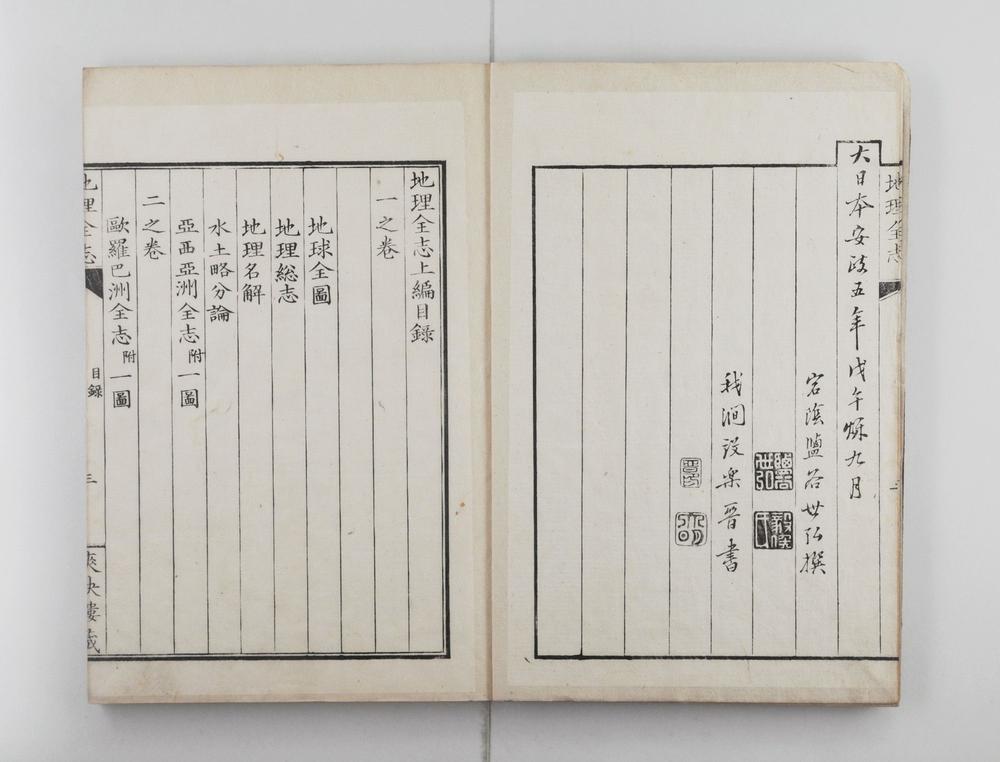 地理全志
大日本安政五年戊午秌九月
宕陰鹽谷世弘撰
我澗設楽晉書
地理全志上編目録
一之卷
地球全圖
地理総志
地理名解
水土略分論
亞西亞洲全志附一圖
二之卷
歐羅巴洲全志附一圖
地理全志
目録
三
爽快樓蔵